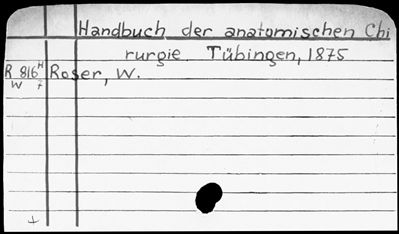 Handbuch der anatomischen Chi
rurgie. Tübingen, 1875
R 816 H Roser, W.
W 7